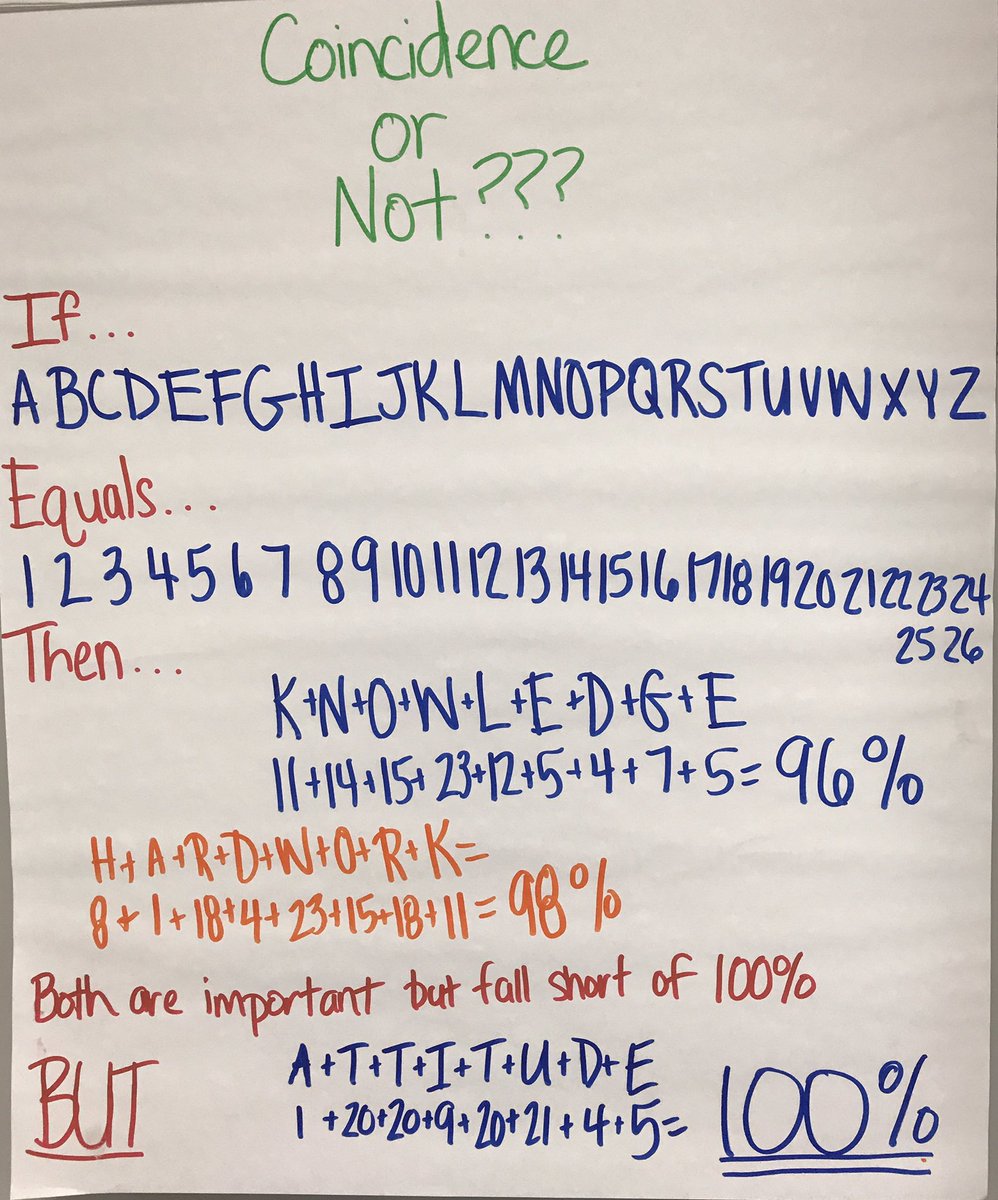 Coincidence
or
Not???
If...
ABCDEFGHIJKLMNOPQRSTUVWXYZ
Equals...
1 2 3 4 5 6 7 8 9 10 11 12 13 14 15 16 17 18 19 20 21 22 23 24
25 26
Then...
K+N+O+W+L+E+D+G+E
11+14+15+23+12+5+4+7+5=96%
H+A+R+D+W+O+R+K=
8+1+18+4+23+15+18+11=98%
Both are important but fall short of 100%
BUT
A+T+T+I+T+U+D+E
1+20+20+9+20+21+4+5=100%